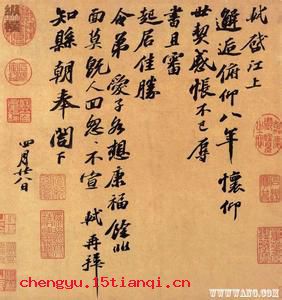 軾啓江上
邂逅俯仰八年懷仰
世契感悵不已辱
書且審
起居佳勝
令弟愛子各想康福餘非
面莫既人回怱怱不宣 軾再拜
知縣朝奉閣下
四月廿八日
縱橫
chengyu.15tianqi.cn